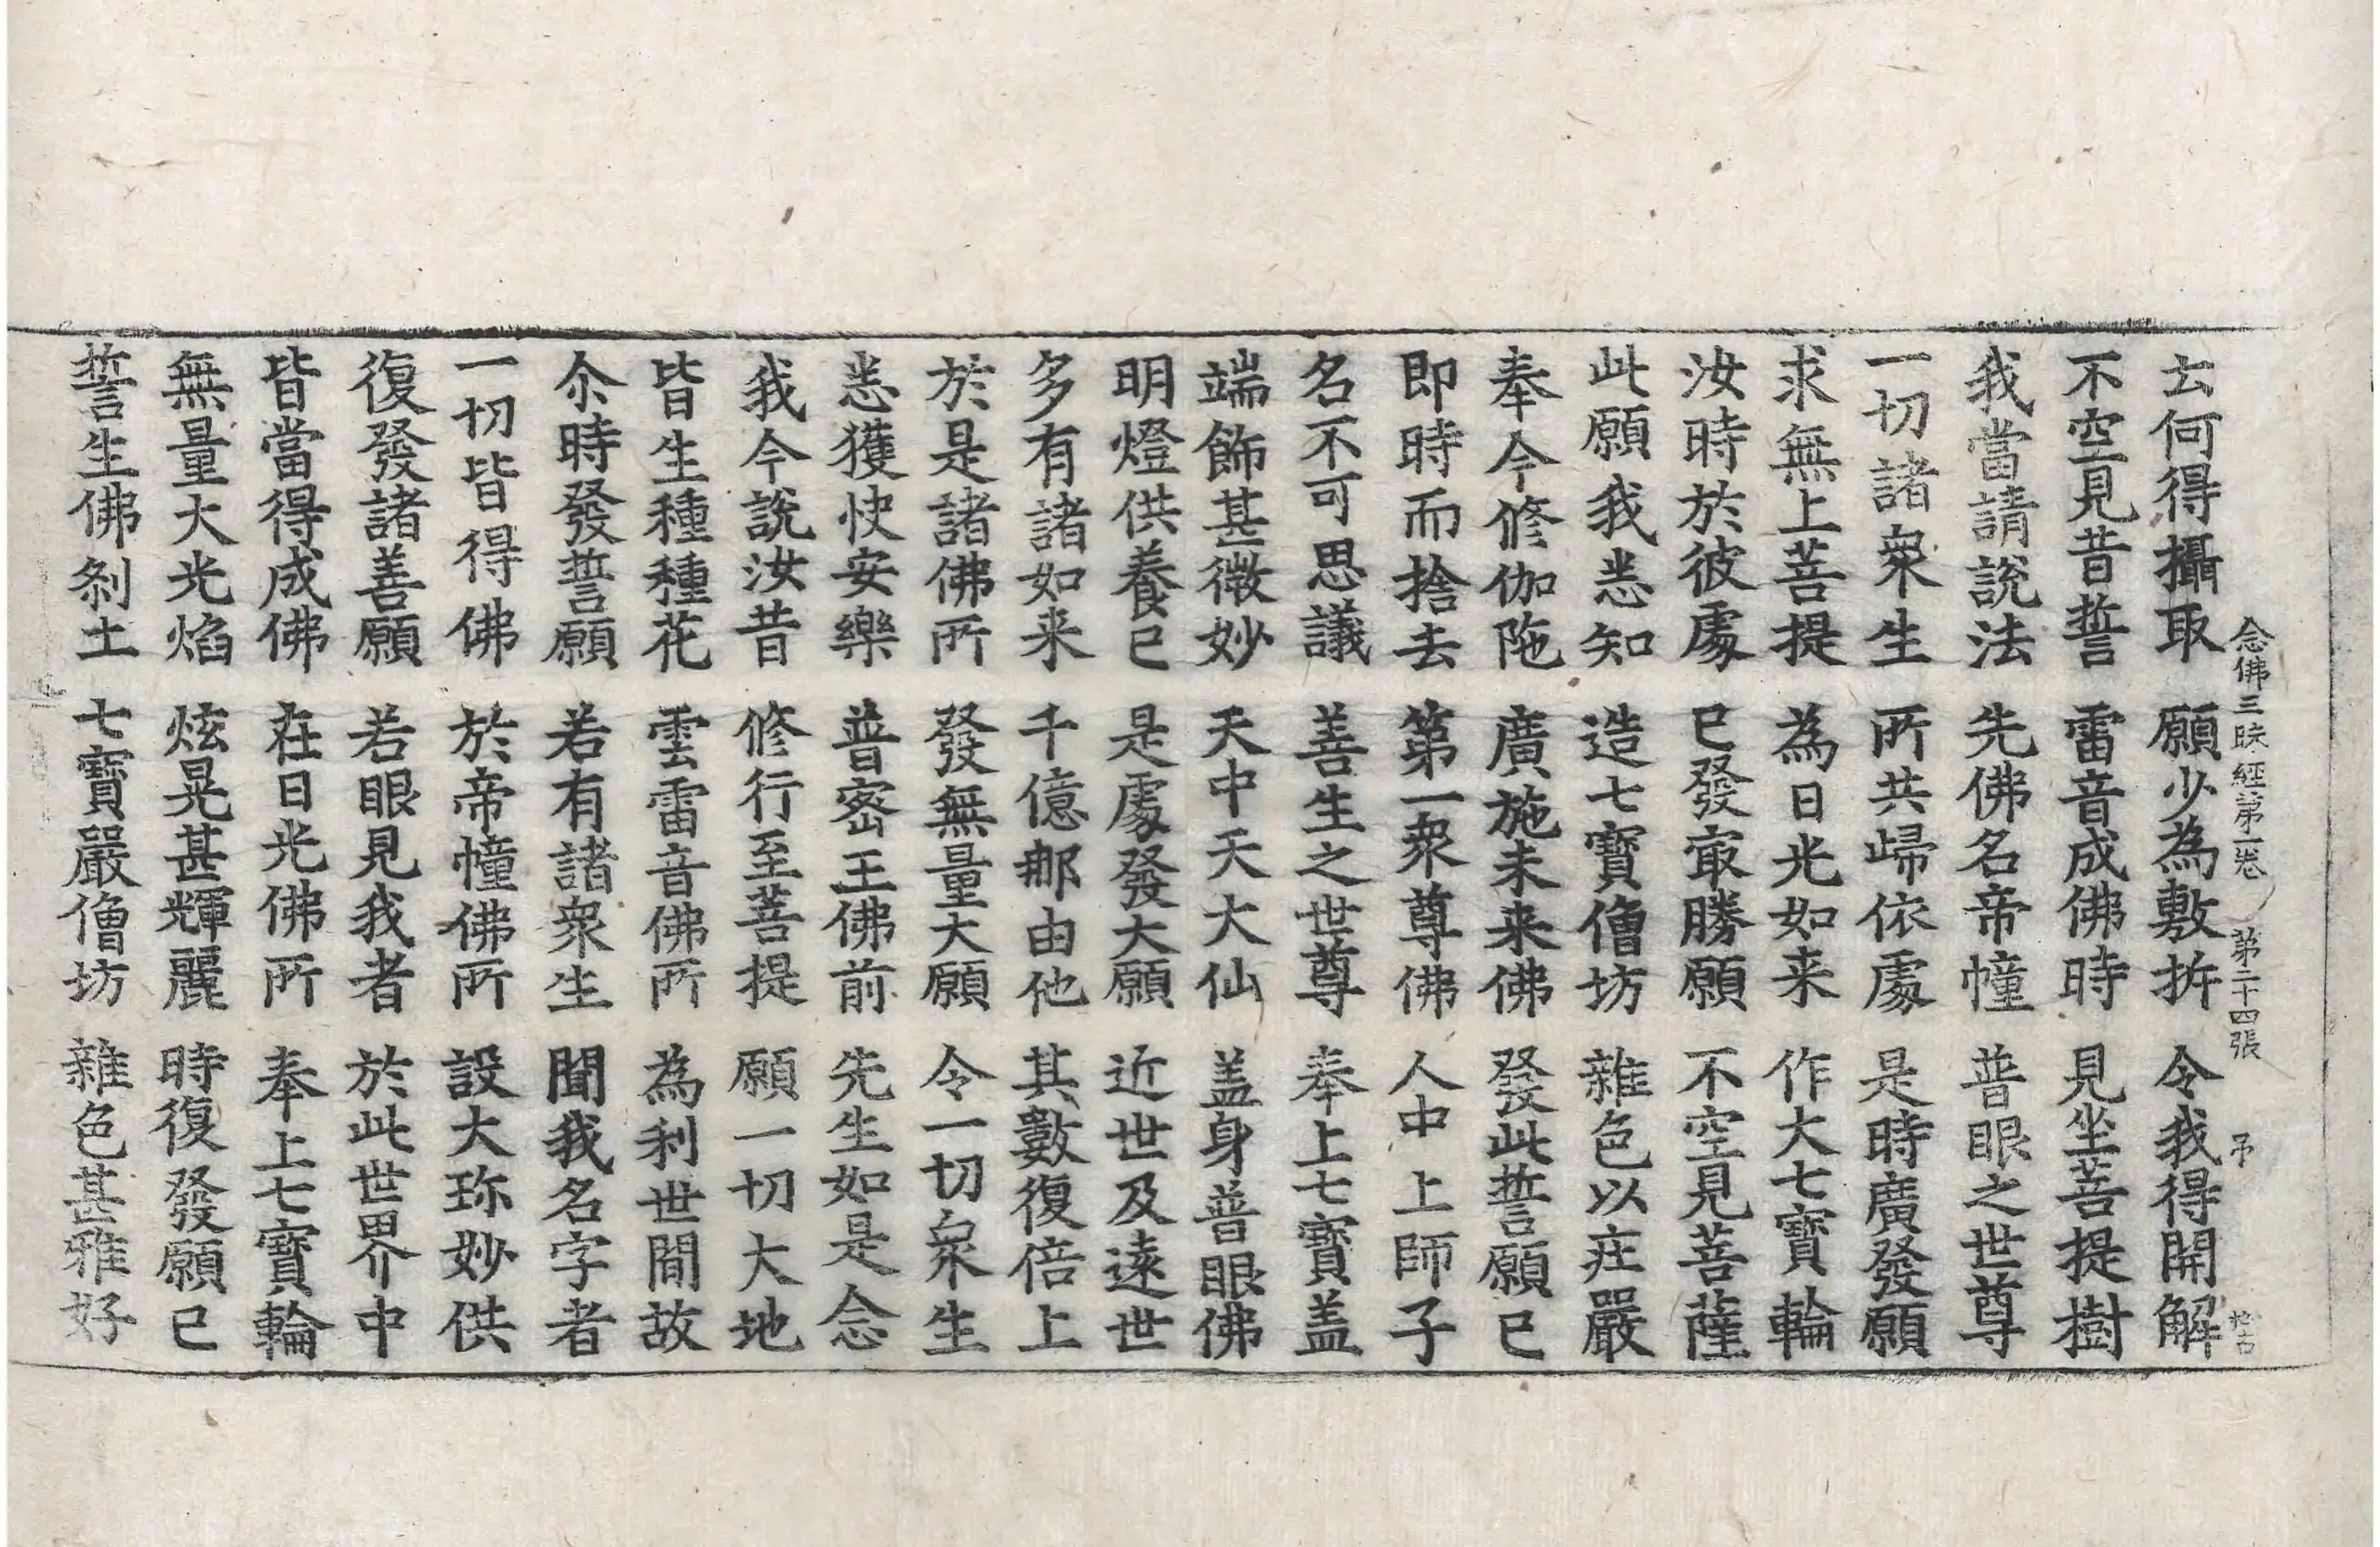 念佛三昧經第一卷 第二十四張 帀
云何得攝取 願少為敷拆 令我得開解
不空見昔誓 雷音成佛時 見坐菩提樹
我當請說法 先佛名帝幢 普眼之世尊
一切諸衆生 所共歸依處 是時廣發願
求無上菩提 為日光如来 作大七寶輪
汝時於彼處 已發冣勝願 不空見菩薩
此願我悉知 造七寶僧坊 雜色以莊嚴
奉今修伽陁 廣施未来佛 發此誓願已
即時而捨去 第一衆尊佛 人中上師子
名不可思議 善生之世尊 奉上七寶盖
端飾甚微妙 天中天大仙 盖身普眼佛
明燈供養已 是處發大願 近世及遠世
多有諸如来 千億那由他 其數復倍上
於是諸佛所 發無量大願 令一切衆生
悉獲快安樂 普密王佛前 先生如是念
我今說汝昔 修行至菩提 願一切大地
皆生種種花 雲雷音佛所 為利世間故
尒時發誓願 若有諸衆生 聞我名字者
一切皆得佛 於帝幢佛所 設大珎妙供
復發諸善願 若眼見我者 於此世界中
皆當得成佛 在日光佛所 奉上七寶輪
無量大光焰 炫晃甚輝麗 時復發願已
誓生佛刹土 七寶嚴僧坊 雜色甚雅好